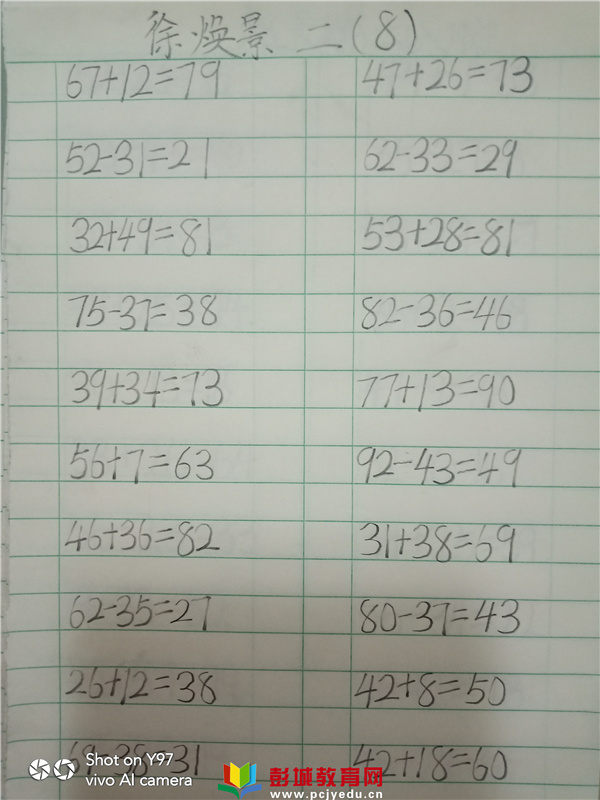 徐焕景 二(8)
67+12=79 47+26=73
52-31=21 62-33=29
32+49=81 53+28=81
75-37=38 82-36=46
39+34=73 77+13=90
56+7=63 92-43=49
46+36=82 31+38=69
62-35=27 80-37=43
26+12=38 42+8=50
69-38=31 42+18=60
Shot on Y97
vivo AI camera
彭城教育网
www.pcjyedu.cn